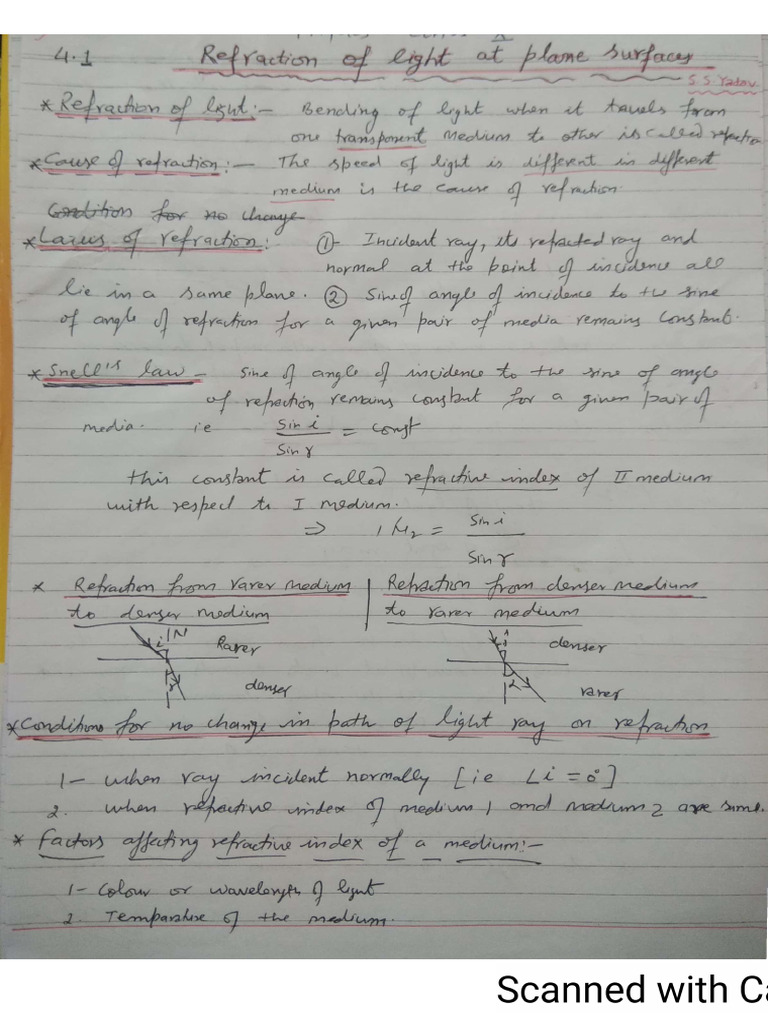 4.1 Refraction of light at plane surfaces
S.S. Yadav
* Refraction of light :- Bending of light when it travels from
one transparent medium to other is called refractio
* Cause of refraction :- The speed of light is different in different
medium is the cause of refraction.
Condition for no change
* Laws of refraction : ①- Incident ray, its refracted ray and
normal at the point of incidence all
lie in a same plane. ② Sine of angle of incidence to the sine
of angle of refraction for a given pair of media remains constant.
* Snell's law - Sine of angle of incidence to the sine of angle
of refraction remains constant for a given pair of
media. ie Sin i / Sin r = const
this constant is called refractive index of II medium
with respect to I medium.
⇒ 1μ2 = Sin i / Sin r
* Refraction from rarer medium | Refraction from denser medium
to denser medium | to rarer medium
i N Rarer i denser
r denser r rarer
* Conditions for no change in path of light ray on refraction
1- when ray incident normally [ie ∠i = 0°]
2. when refractive index of medium 1 and medium 2 are same.
* Factors affecting refractive index of a medium :-
1- Colour or wavelength of light
2. Temparature of the medium.
Scanned with Ca